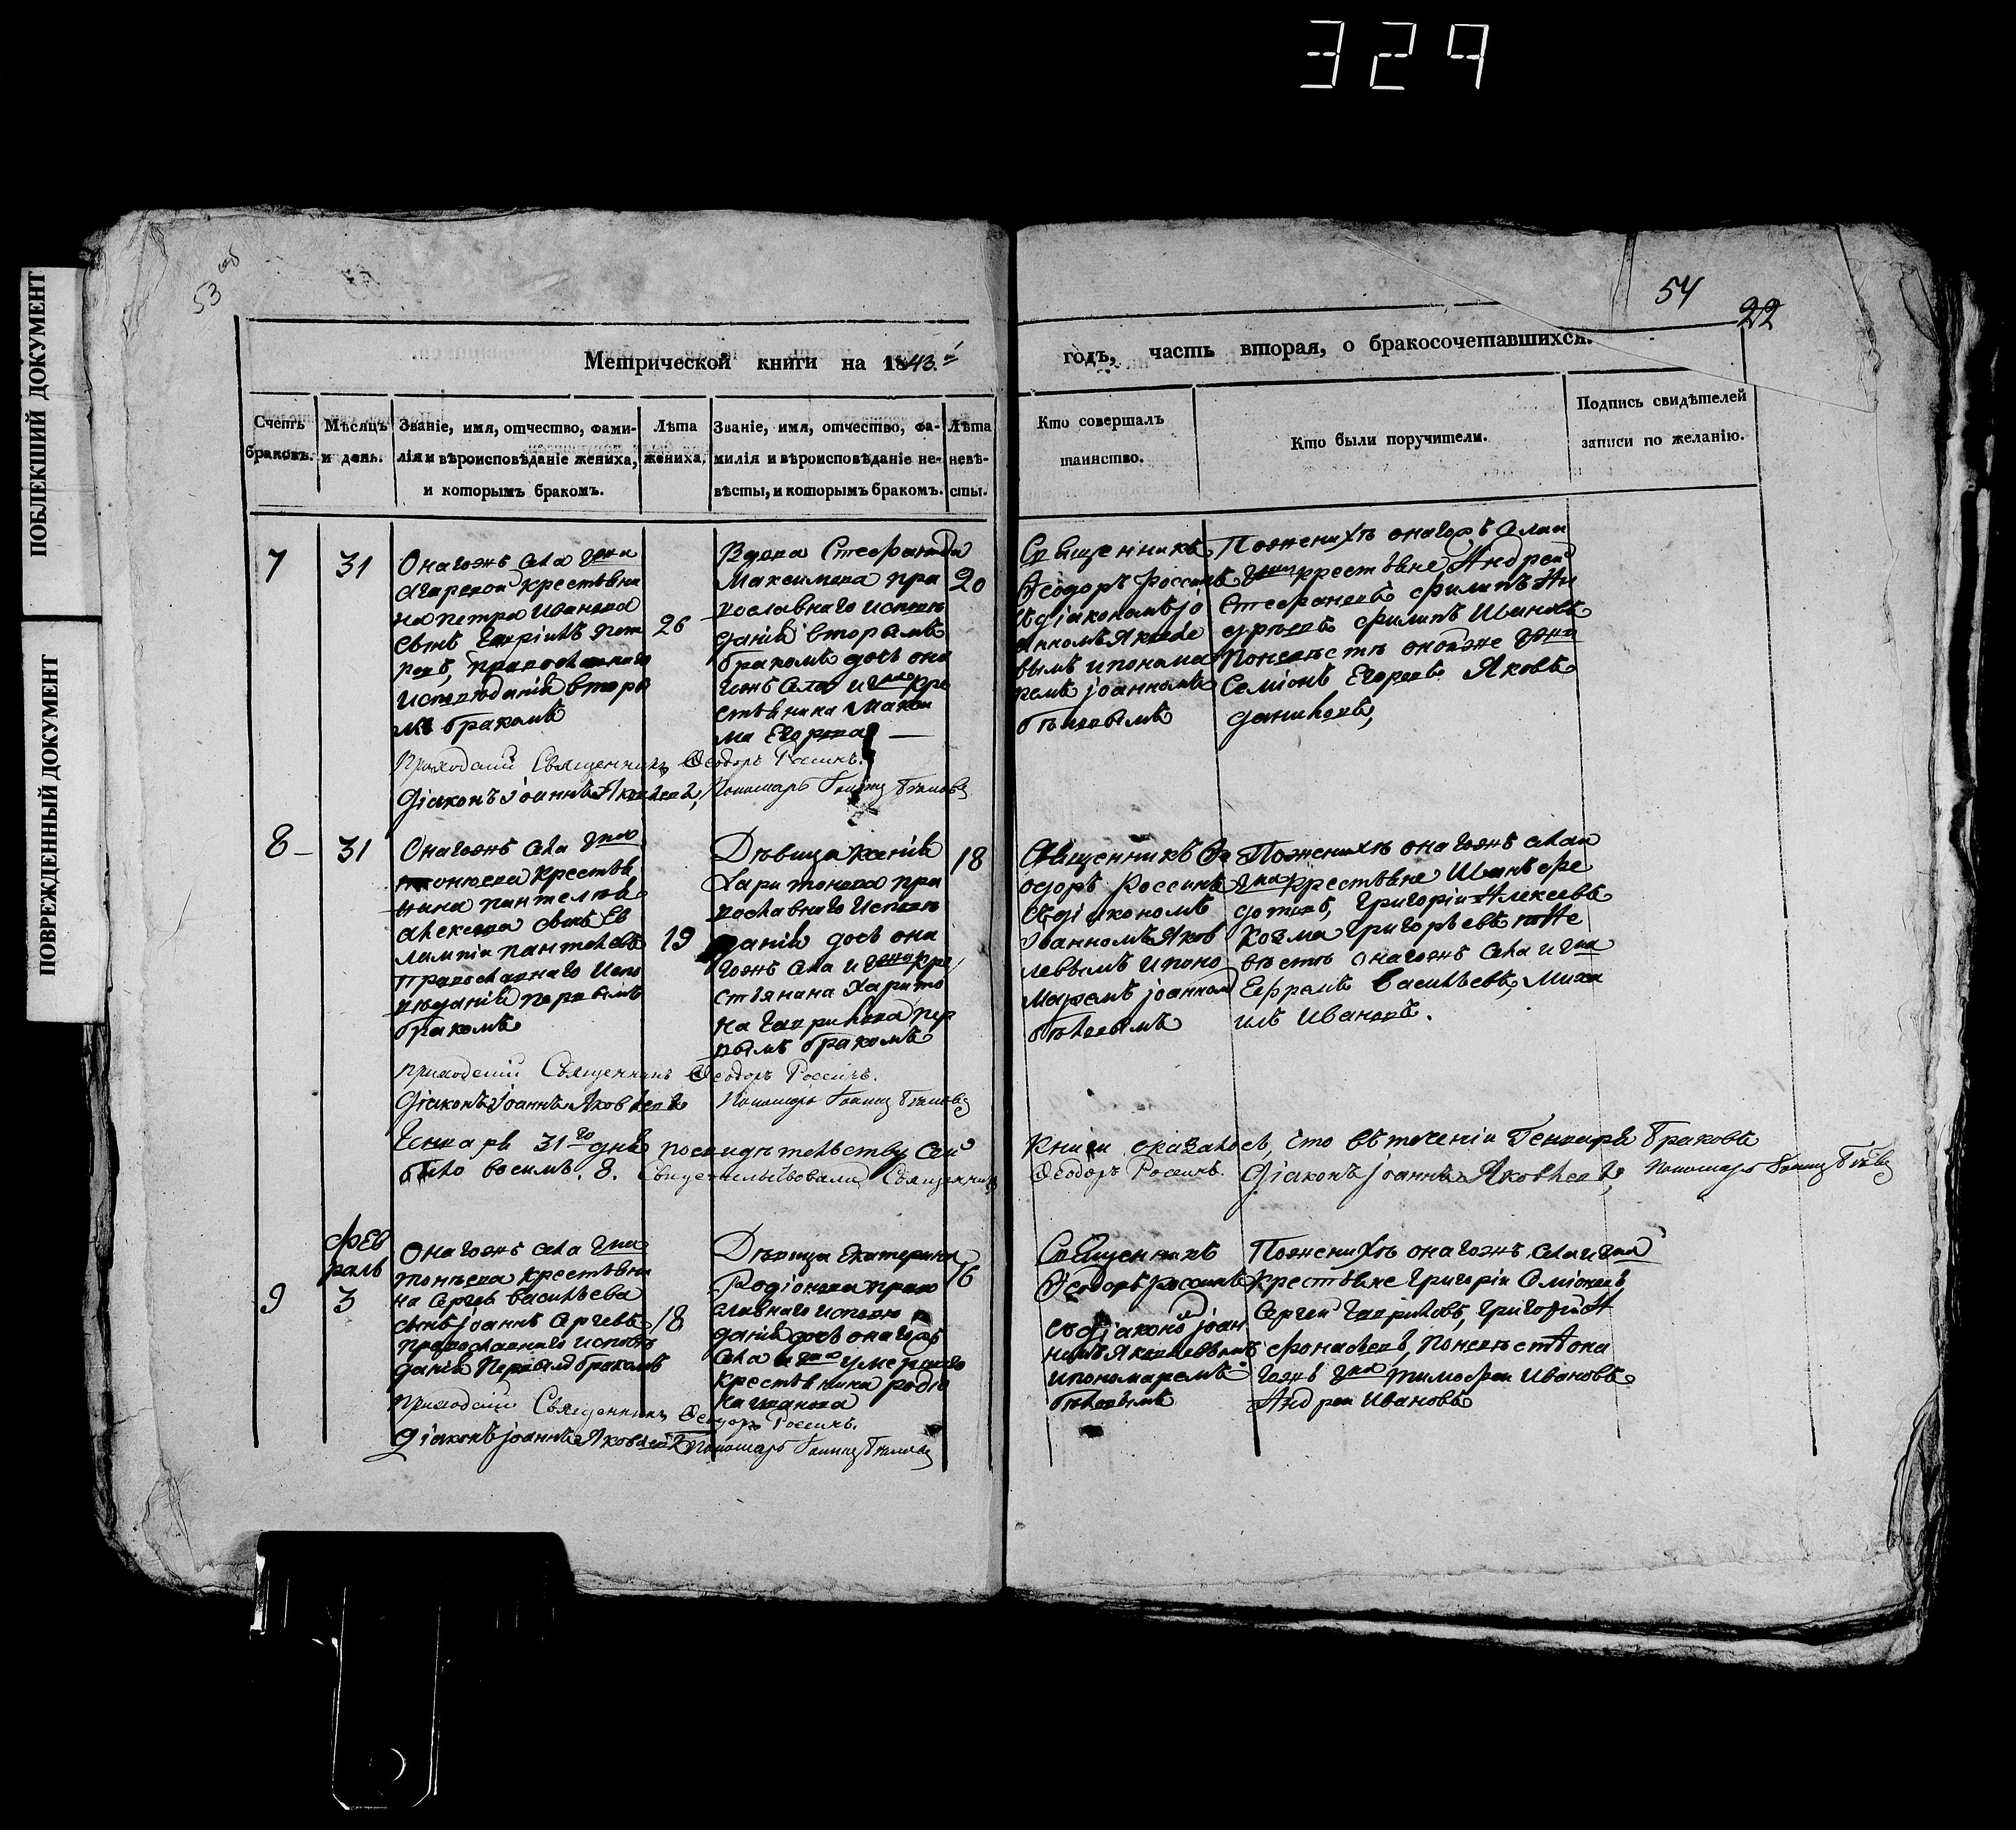 329
ПОБЛЕКШИЙ ДОКУМЕНТ
ПОВРЕЖДЕННЫЙ ДОКУМЕНТ
53 об
54
22
Метрической книги на 1843.й
годъ, часть вторая, о бракосочетавшихся.
Счетъ браковъ.
Мѣсяцъ и день.
Званіе, имя, отчество, фами-
лія и вѣроисповѣданіе жениха,
и которымъ бракомъ.
Лѣта
жениха.
Званіе, имя, отчество, фа-
милія и вѣроисповѣданіе не-
вѣсты, и которымъ бракомъ.
Лѣта
невѣ-
сты.
Кто совершалъ
таинство.
Кто были поручители.
Подпись свидѣтелей
записи по желанію.
7
31
Онагожъ села
крестьяни
на петра Иванова
сынъ Гаврiилъ пет
ровъ, православнаго
исповѣданiя вторы
мъ бракомъ
26
Вдова Стефанида
Максимова пра
вославнаго исповѣ
данiя вторымъ
бракомъ дочь она
гожъ села и кре
стьянина Макси
ма Егорова
20
Священникъ
Ѳеодоръ Россинъ
съ дiакономъ jо
анномъ Яковле
вымъ и понома
ремъ jоанномъ
бѣловымъ
Поженихѣ онагожъ села и
крестьяне, Андрей
Стефановъ филипъ Ан
дрѣевъ филипъ Ивановъ
Поневѣстѣ онагоже
Семiонъ Егоровъ Яковъ
даниловъ,
Приходскiй Священникъ Ѳеодоръ Россинъ.
Дiаконъ jоаннъ Яковлевъ, Пономарь Iоаннъ Бѣловъ
8
31
Онагожъ села
крестья
нина пантелея
алексева сынъ Ев
лампiй пантелевъ
Православнаго испо
вѣданiя первымъ
бракомъ
19
Дѣвица Ксенiя
Харитонова пра
вославнаго исповѣ
данiя дочь она
гожъ села и кре
стьянина Харито
на Гаврилова пер
вымъ бракомъ
18
Священникъ Ѳе
одоръ Россинъ
съ дiакономъ
jоанномъ Яков
левымъ и поно
маремъ jоанном
бѣловымъ
Поженихѣ онагожъ села и
крестьяне Иванъ Фе
дотовъ, Григорiй Алексевъ
Козма Григорьевъ поне
вѣстѣ онагожъ села и
Ефремъ Васильевъ, Миха
илъ Ивановъ.
Приходскiй Священникъ Ѳеодоръ Россинъ.
Дiаконъ jоаннъ Яковлевъ Пономарь Iоаннъ Бѣловъ
Генваря 31го дня посвидѣтельству сей
книги оказалось, что въ теченiи Генваря браковъ
было восимъ. 8. Свидетельствовали Священникъ
Ѳеодоръ Россинъ. Дiаконъ jоаннъ Яковлевъ, Пономарь Iоаннъ Бѣловъ
Фев
раль
9
3
Онагожъ села
крестьяни
на Сергея Васильева
сынъ jоаннъ Сергевъ
православнаго исповѣ
данiя Первымъ бракомъ
18
Дѣвица Екатерина
Родiонова право
славнаго исповѣ
данiя дочь онагожъ
села и умершаго
крестьянина родiо
на иванова
16
Священникъ
Ѳеодоръ Россинъ
съ дiаконо jоан
номъ Яковлевымъ
и пономаремъ
бѣловымъ
Поженихѣ онагожъ села и
крестьяне Григорiй Семiоновъ
Сергей Гавриловъ, Григорiй А
фонасьевъ, Поневѣстѣ она
гожъ тимофей Ивановъ
Андрей Ивановъ
Приходскiй Священникъ Ѳеодоръ Россинъ.
Дiаконъ jоаннъ Яковлевъ Пономарь Iоаннъ Бѣловъ